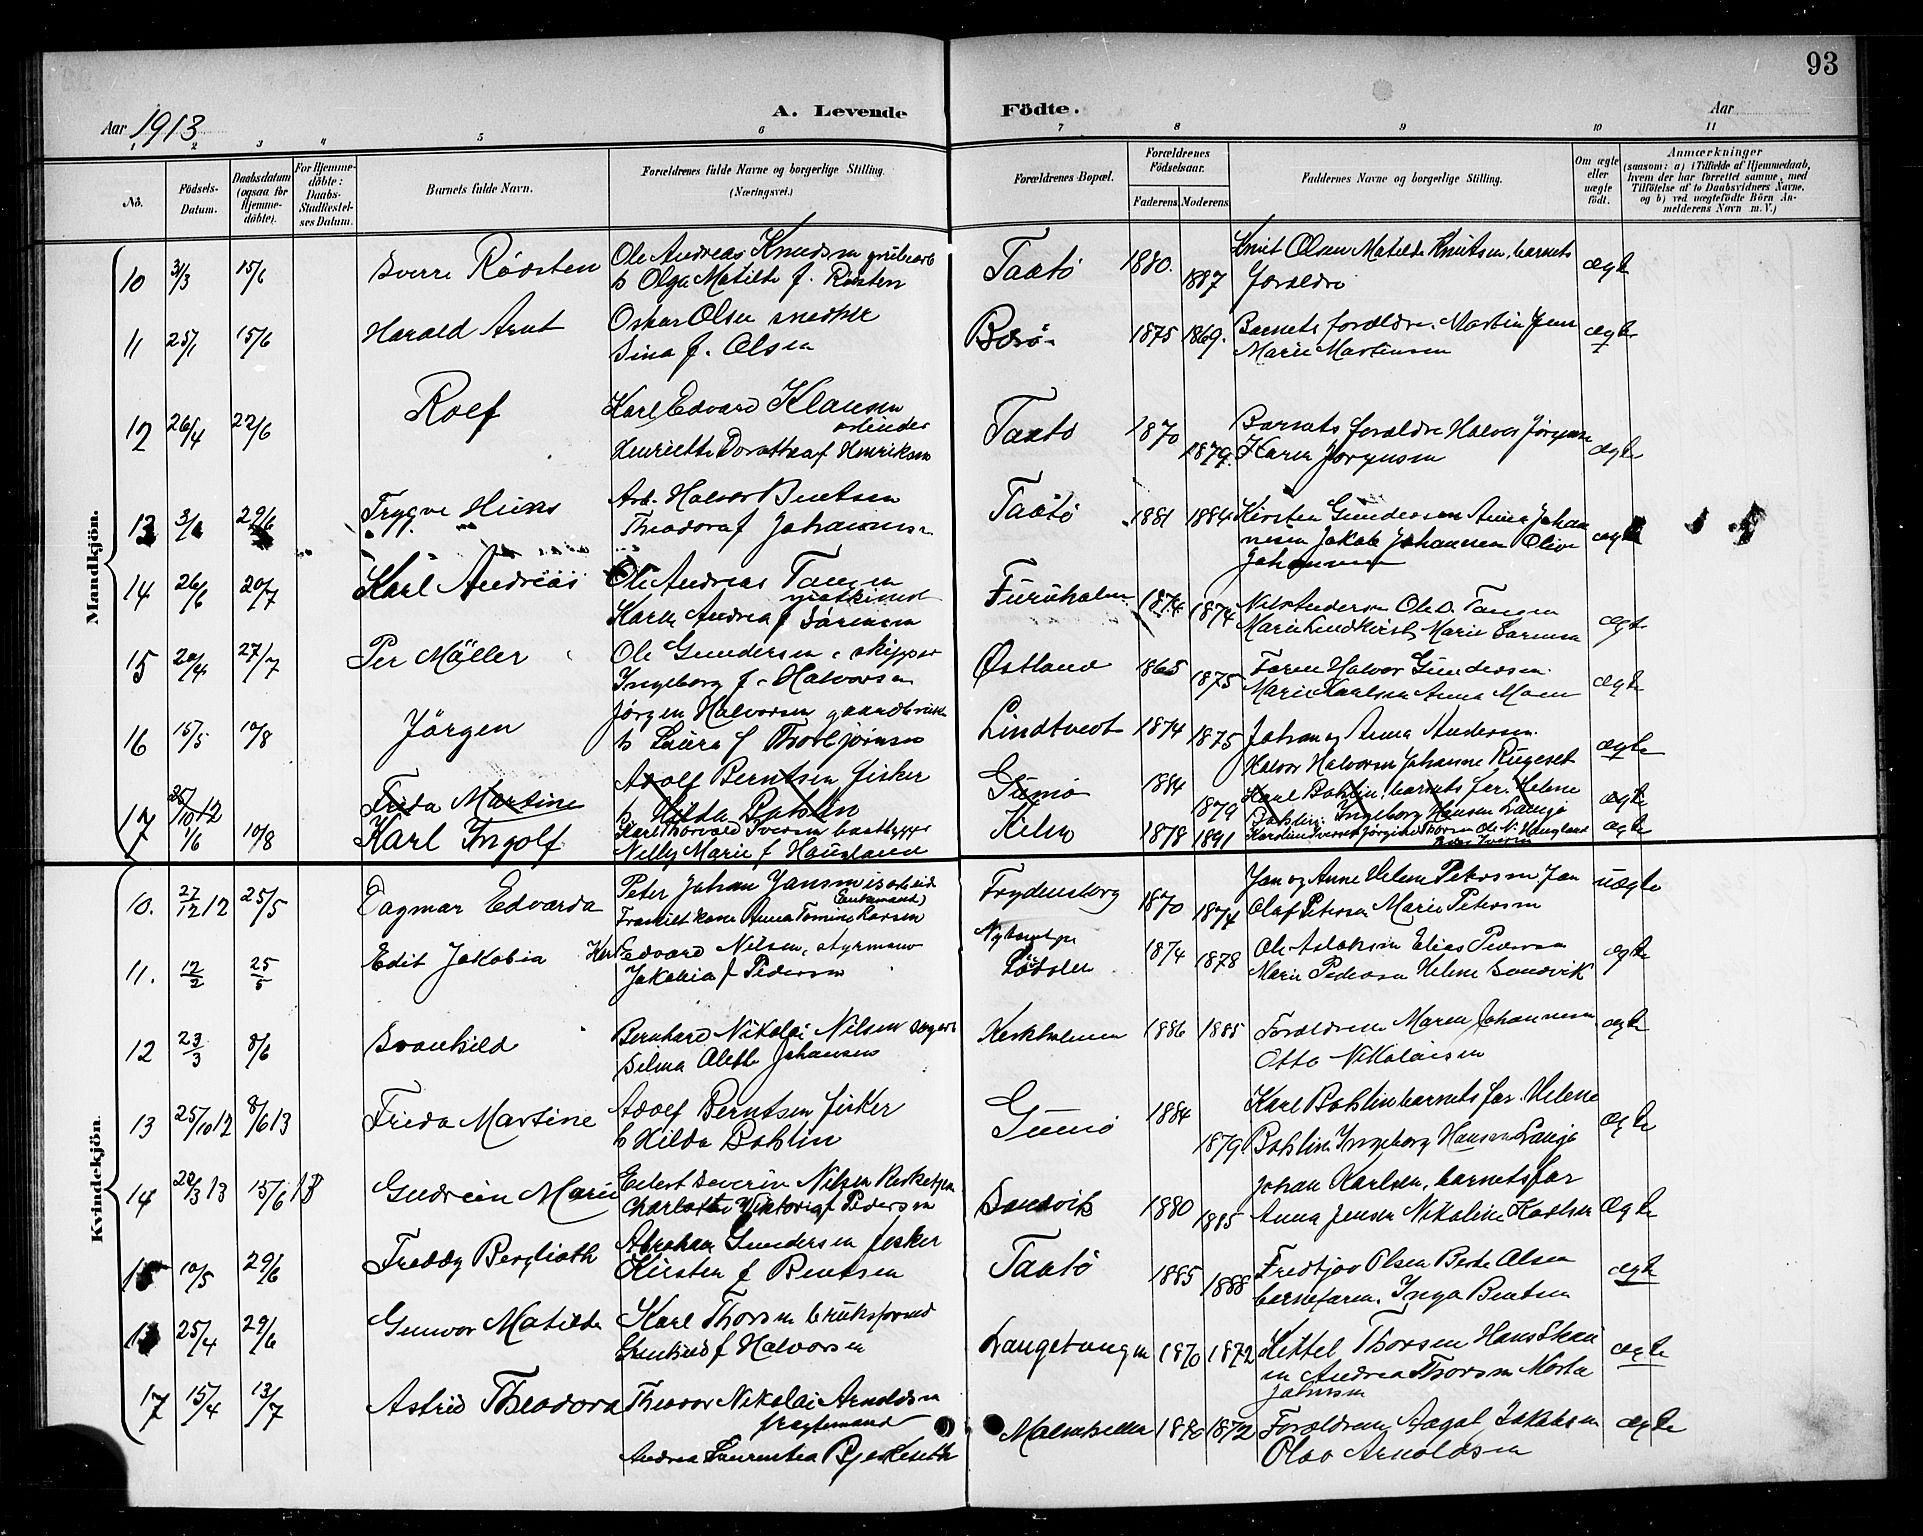 93
Aar 1913
A. Levende Födte.
Aar
1 2 3 4 5 6 7 8 9 10 11
No.
Födsels-Datum.
Daabsdatum (ogsaa for Hjemme-döbte).
For Hjemme-döbte: Daabs Stadfæstel-ses Datum.
Barnets fulde Navn.
Forældrenes fulde Navne og borgerlige Stilling. (Næringsvei.)
Forældrenes Bopæl.
Forældrenes Födselsaar.
Faderens Moderens
Faddernes Navne og borgerlige Stilling.
Om ægte eller uægte födt.
Anmærkninger (saasom: a) i Tilfælde af Hjemmedaab, hvem der har forrettet samme, med Tilföielse af to Daabsvidners Navne, og b) ved uægtefödte Börn An-melderens Navn m. V.)
Mandkjön.
10 31/3 15/6 Sverre Rödsten Ole Andreas Knudsen Taatö 1880. Knut Olsen Matilde Knutsen, barnets ægte
h Olga Matilde f. 1887 forældre
11 25/1 15/6 Harald Arnt Oskar Olsen snedker 1875 1869. Barnets forældre. Martin ægte
Sina f. Olsen Marie Martinsen
12 26/4 22/6 Rolf Karl Edvard Klausen Taatö 1870 Barnets forældre Halvor Jörgensen ægte
Henriette Dorothea f Henriksen 1879. Karen Jorgensen
13 29/6 Trygve Arb. Halvor Bentsen Taatö 1881 1884 Kirsten Gundersen Anna Johan
Theodora f Johannesen nesen Jakob Johannesen Olive
Johannesen
14 26/6 20/7 Karl Andreas Ole Andreas Tangen Furuholmen 1874 1874 Nils Andersen Ole O. Tangen ægte
Karen Andrea f Sörensen Marie Marie Sörensen
15 20/4 27/7 Per Möller Ole Gundersen, skipper Østland 1865 1875 Faren Halvor Gundersen ægte
Ingeborg f. Halvorsen Marie Karlsen Anna
16 15/5 10/8 Jörgen Jörgen Halvorsen Lindtvedt 1874 1875 Johan og Anna Andersen. ægte
h Laura f Thorbjörnsen Halvor Halvorsen Johanne
17 25/10 12 Frida Martine Adolf Berntsen fisker Gumö 1884 1879 Karl Bohlin, barnets far. Helene ægte
h Hilda Bohlin Bohlin. Ingeborg Hansen Langö
1/6 10/8 Karl Ingolf Karl Thorvald Iversen baatbygger 1878 1891 ægte
Nelly Marie f Haugland
Kvindekjön.
10. 27/12 12 25/5 Dagmar Edvarda Peter Johan Jansen Frydensborg 1870 1874 Jan og Anne Helene Petersen Jan uægte
(Enkemand) Olaf Petersen Marie Petersen
Fraskilt kone Anna Tomine Larsen
11. 12/2 25/5 Edit Jakobia Karl Edvard Nilsen, styrmand 1874 1878 Ole Aslaksen Elias Pedersen ægte
Jakobia f Pedersen Marie Pedersen Helene Sandvik
12 23/3 8/6 Svanhild Bernhard Nikolai Nilsen 1886 1885 Forældrene Maren Johannesen ægte
Selma Aleth Johansen Otto Nikolaisen
13 25/10 12 8/6 13 Frida Martine Adolf Berntsen fisker Gumö 1884 1879 Karl Bohlin barnets far Helene ægte
h Hilda Bohlin Bohlin Ingeborg Hansen Langö
14 20/3 13 15/6 13 Gudrun Marie Eilert Severin Nilsen Sandvik 1880 1885 Johan Karlsen, barnets far ægte
Charlotte Viktoria f Pedersen Anna Jensen Nikoline Karlsen
15 10/5 29/6 Freddy Berglioth Abraham Gundersen fisker Taatö 1885 1888 Fredtjov Olsen Berte Olsen ægte
Kirsten f Bentsen barnefaren. Inga Bentsen
25/4 29/6 Gunvor Matilde Karl Thorsen Langetangen 1870 1872 Kittel Thorsen Hans ægte
f Halvorsen Andrea Thorsen
17 15/4 13/7 Astrid Theodora Theodor Nikolai Arnoldsen 1870 1872 Forældrene Aagot Jakobsen ægte
fragtemand Olav Arnoldsen
Andrea Laurentia